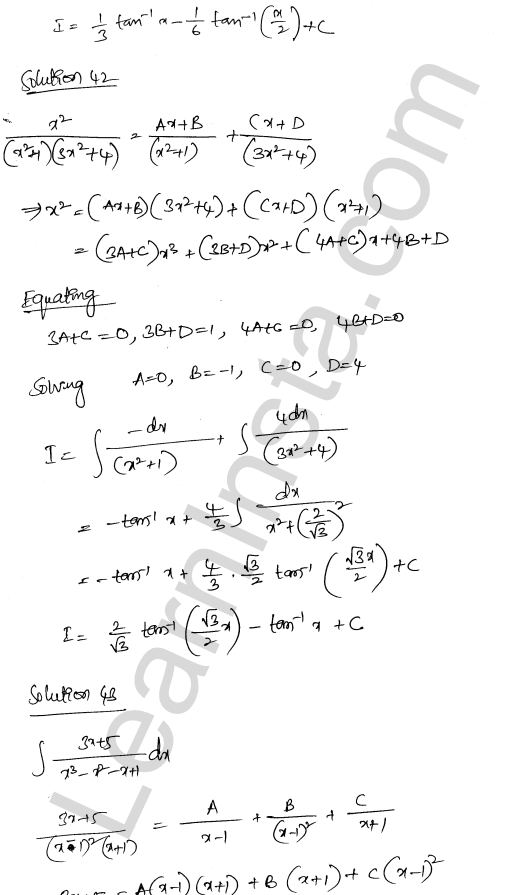 I = 1/3 tan⁻¹ x − 1/6 tan⁻¹(x/2) + C
Solution 42
x²/((x²+1)(3x²+4)) = (Ax+B)/(x²+1) + (Cx+D)/(3x²+4)
⇒ x² = (Ax+B)(3x²+4) + (Cx+D)(x²+1)
= (3A+C)x³ + (3B+D)x² + (4A+C)x + 4B+D
Equating
3A+C=0, 3B+D=1, 4A+C=0, 4B+D=0
Solving A=0, B=-1, C=0, D=4
I = ∫ -dx/(x²+1) + ∫ 4dx/(3x²+4)
= -tan⁻¹ x + 4/3 ∫ dx/(x²+(2/√3)²)
= -tan⁻¹ x + 4/3 · √3/2 tan⁻¹(√3x/2) + C
I = 2/√3 tan⁻¹(√3/2 x) − tan⁻¹ x + C
Solution 43
∫ (3x+5)/(x³-x²-x+1) dx
(3x+5)/((x-1)²(x+1)) = A/(x-1) + B/(x-1)² + C/(x+1)
= A(x-1)(x+1) + B(x+1) + C(x-1)²
LearnInsta.com